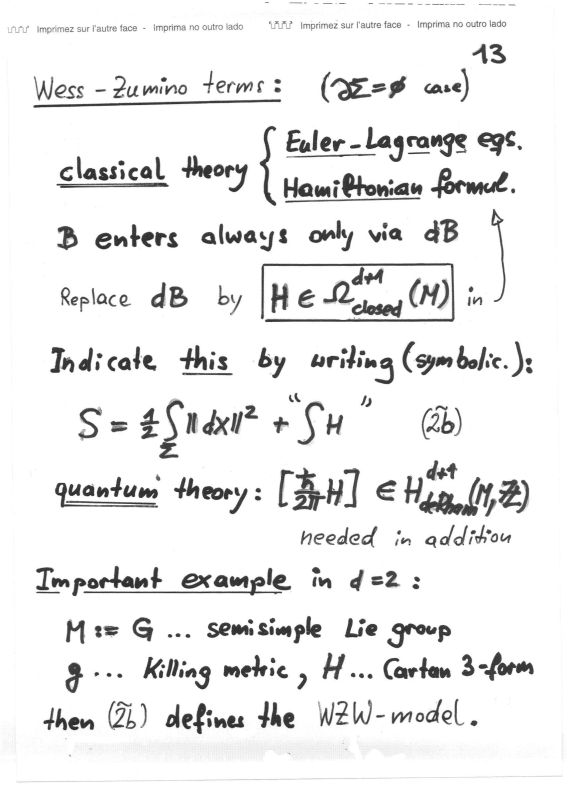 Imprimez sur l'autre face - Imprima no outro lado    Imprimez sur l'autre face - Imprima no outro lado
13
Wess-Zumino terms: (∂Σ=∅ case)
classical theory { Euler-Lagrange eqs.
Hamiltonian formul.
B enters always only via dB
Replace dB by H ∈ Ω^{d+1}_{closed}(M) in
Indicate this by writing (symbolic.):
S = ½ ∫_Σ ||dx||² + "∫H" (2̃b)
quantum theory: [ħ/2π H] ∈ H^{d+1}_{deRham}(M,ℤ)
needed in addition
Important example in d=2:
M := G ... semisimple Lie group
g ... Killing metric, H ... Cartan 3-form
then (2̃b) defines the WZW-model.